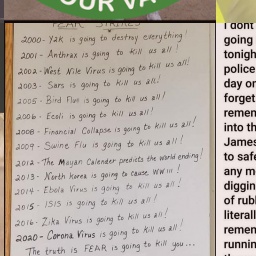 OUR VA
FEAR STRIKES
2000- Y2K is going to destroy everything!
2001- Anthrax is going to kill us all!
2002- West Nile Virus is going to kill us all!
2003- Sars is going to kill us all!
2005- Bird Flu is going to kill us all!
2006- Ecoli is going to kill us all!
2008- Financial Collapse is going to kill us all!
2009- Swine Flu is going to kill us all!
2012- The Mayan Calender predicts the world ending!
2013- North Korea is going to cause WW III!
2014- Ebola Virus is going to kill us all!
2015- ISIS is going to kill us all!
2016- Zika Virus is going to kill us all!
2020- Corona Virus is going to kill us all!
The truth is FEAR is going to kill you...
I dont
going
tonigh
police
day or
forget
remen
into th
James
to safe
any m
diggin
of rubl
literall
remen
runnin